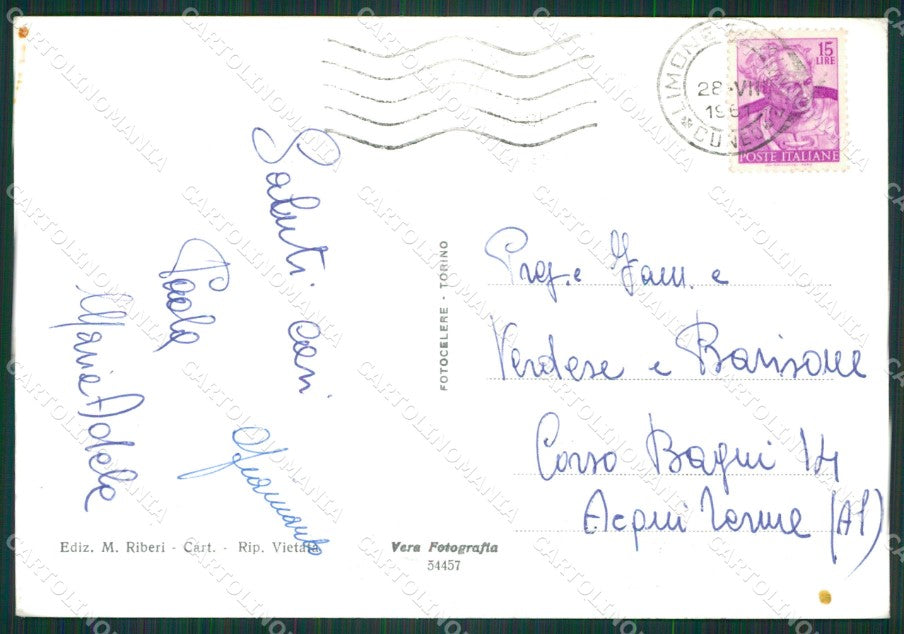 LIMONE
28·VIII
1961
CUNEO
15
LIRE
POSTE ITALIANE
Saluti cari
Paola
Maria Adele
FOTOCELERE - TORINO
Prof. e Fam. e
Verdese e Barisone
Corso Bagni 14
Acqui Terme (Al)
Ediz. M. Riberi - Cart. - Rip. Vietata
Vera Fotografia
54457
CARTOLINOMANIA